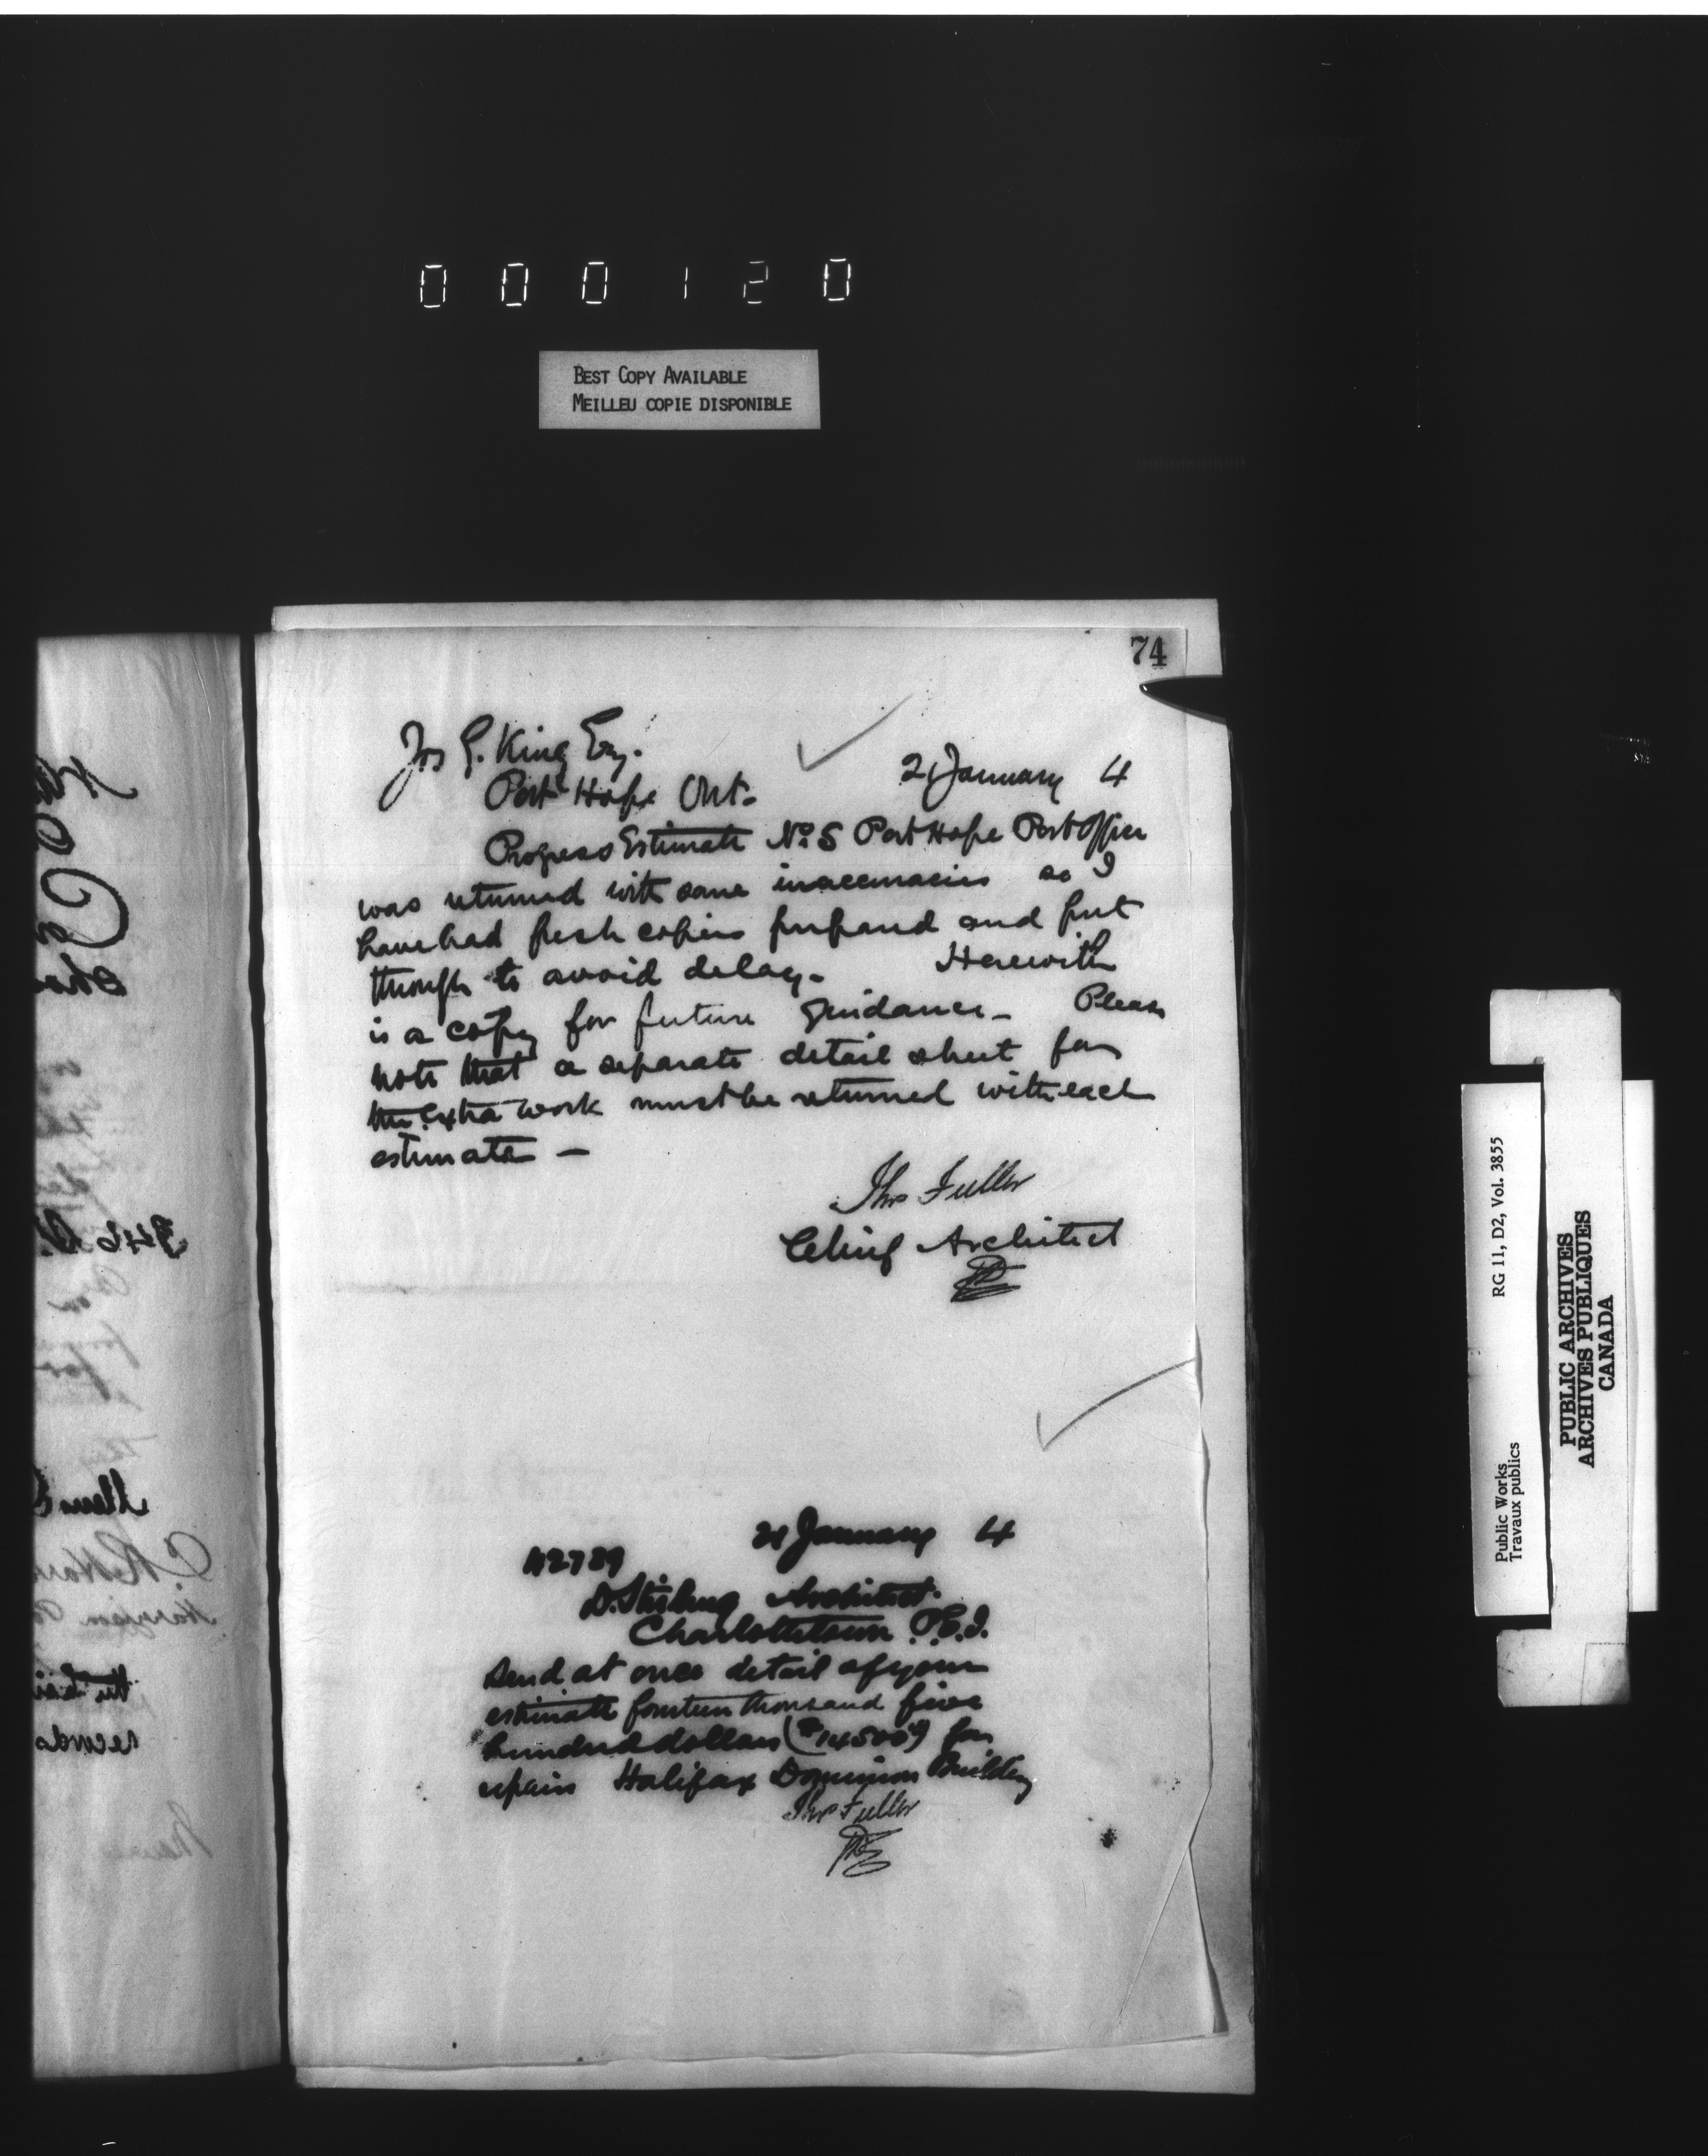 000120
BEST COPY AVAILABLE
MEILLEU COPIE DISPONIBLE
74
Jos G. King Esq.
21 January 4
Port Hope Ont.
Progress Estimate No. 5 Port Hope Post Office
was returned with some inaccuracies so I
have had fresh copies prepared and put
through to avoid delay. Herewith
is a copy for future guidance. Please
note that a separate detail sheet for
the extra work must be returned with each
estimate —
Thos Fuller
Chief Architect
21 January 4
42789
D. Stirling Architect.
Charlottetown P.E.I.
Send at once detail of your
estimate fourteen thousand five
hundred dollars ($14500) for
repairs Halifax Dominion Building
Thos Fuller
RG 11, D2, Vol. 3855
Public Works
Travaux publics
PUBLIC ARCHIVES
ARCHIVES PUBLIQUES
CANADA
records